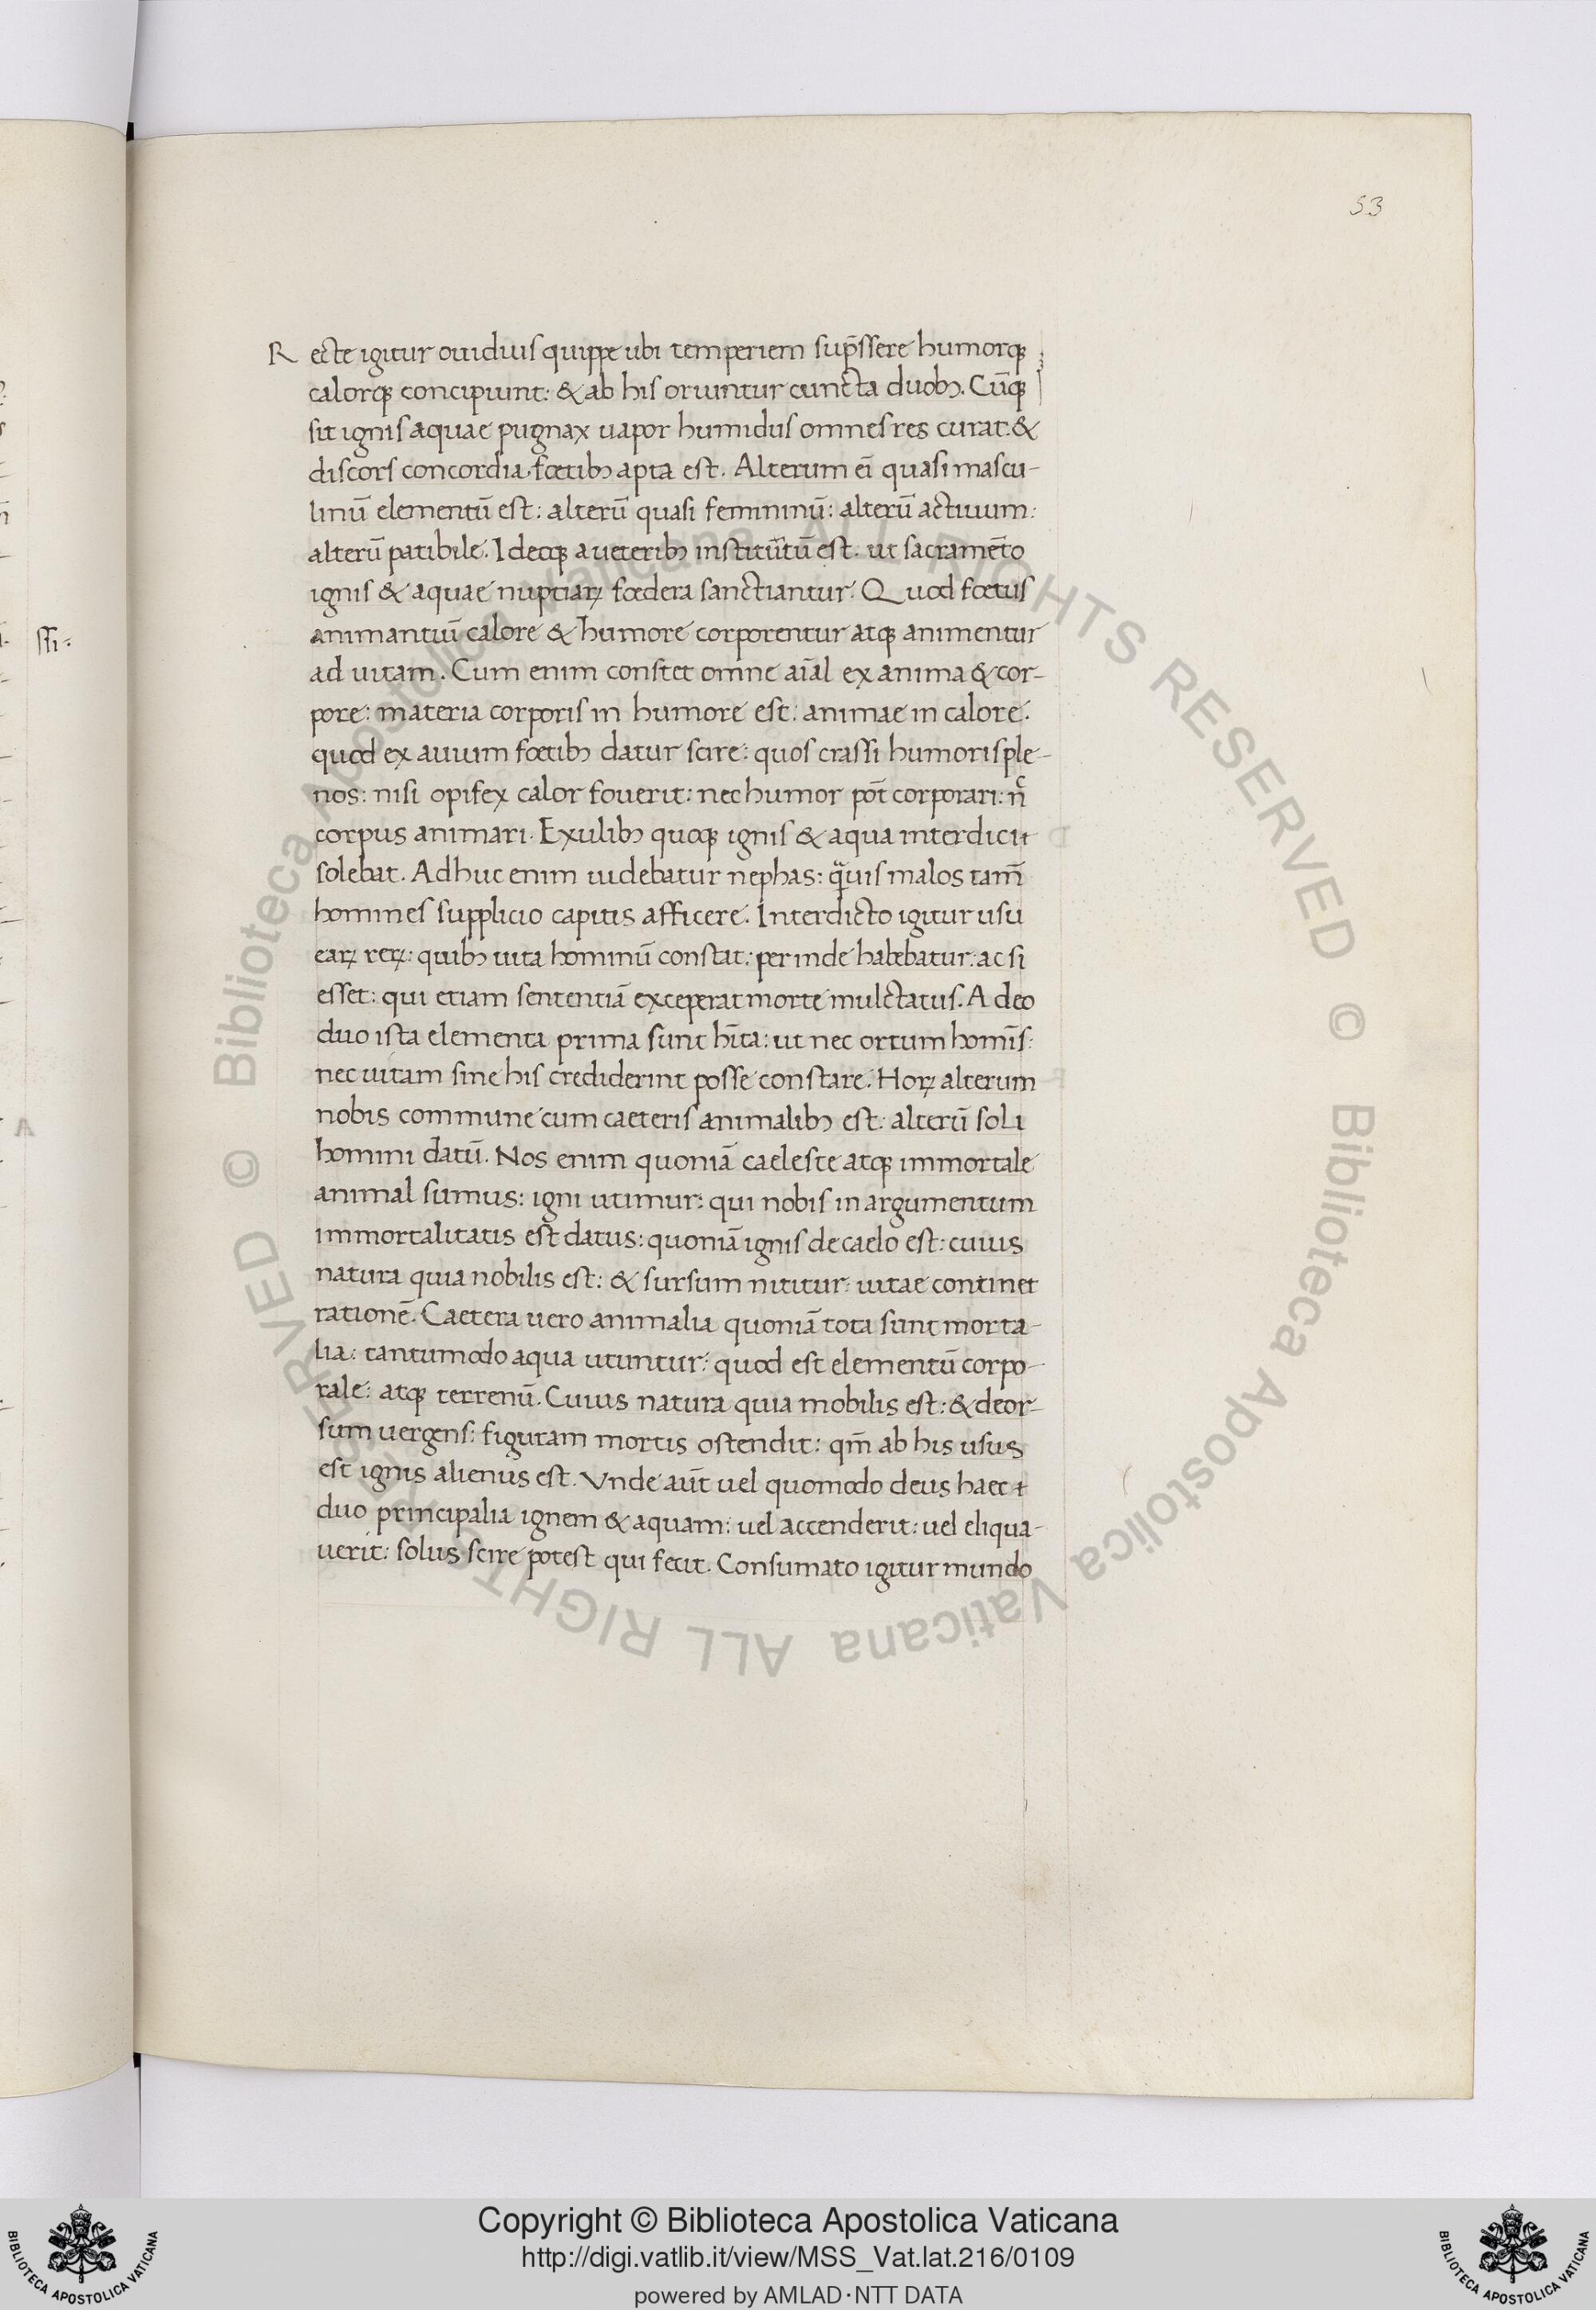 53
Recte igitur ouidius quippe ubi temperiem sup̄ssere humorq;
calorq; concipiunt: & ab his oriuntur cuncta duobꝫ. Cūq;
sit ignis aquae pugnax uapor humidus omnes res curat: &
discors concordia foetibꝫ apta est. Alterum eī quasi mascu-
linū elementū est: alterū quasi femininū: alterū actiuum:
alterū patibile. Ideoq; a ueteribꝫ institūtū est. ut sacramēto
ignis & aquae nuptiaꝝ foedera sanctiantur. Quod foetus
animantiū calore & humore corporentur atq; animentur
ad uitam. Cum enim constet omne aīal ex anima & cor-
pore: materia corporis in humore est: animae in calore.
quod ex auium foetibꝫ datur scire: quos crassi humoris ple-
nos: nisi opifex calor fouerit: nec humor pōt corporari: nͨ
corpus animari. Exulibꝫ quoq; ignis & aqua interdici
solebat. Adhuc enim uidebatur nephas: q̈uis malos tam̄
homines supplicio capitis afficere. Interdicto igitur usu
eaꝝ reꝝ: quibꝫ uita hominū constat: perinde habebatur: ac si
esset: qui etiam sententiā exceperat morte mulctatus. Adeo
duo ista elementa prima sunt hīta: ut nec ortum homīs:
nec uitam sine his crediderint posse constare. Hoꝝ alterum
nobis commune cum caeteris animalibꝫ est: alterū soli
homini datū. Nos enim quoniā caeleste atq; immortale
animal sumus: igni utimur: qui nobis in argumentum
immortalitatis est datus: quoniā ignis de caelo est: cuius
natura quia nobilis est: & sursum nititur: uitae continet
rationē. Caetera uero animalia quoniā tota sunt morta-
lia: tantumodo aqua utuntur: quod est elementū corpo-
rale: atq; terrenū. Cuius natura quia mobilis est: & deor-
sum uergens: figuram mortis ostendit: qm̄ ab his usus
est ignis alienus est. Vnde aūt uel quomodo deus haec
duo principalia ignem & aquam: uel accenderit: uel eliqua-
uerit: solus scire potest qui fecit. Consumato igitur mundo
© Biblioteca Apostolica Vaticana ALL RIGHTS RESERVED © Biblioteca Apostolica Vaticana ALL RIGHTS RESERVED
Copyright © Biblioteca Apostolica Vaticana
http://digi.vatlib.it/view/MSS_Vat.lat.216/0109
powered by AMLAD·NTT DATA
BIBLIOTECA APOSTOLICA VATICANA
BIBLIOTECA APOSTOLICA VATICANA